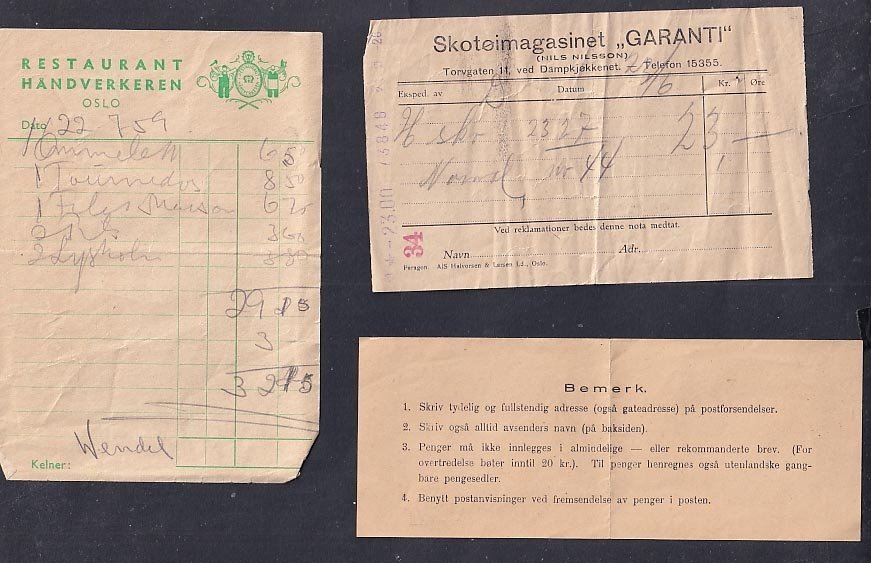 RESTAURANT
HÅNDVERKEREN
OSLO
Dato 22 7 59
1 Ommelett 6 50
1 Tournedos 8 50
1
3 60
2
29 15
3
32 15
Wendel
Kelner:
Skotøimagasinet „GARANTI"
(NILS NILSSON)
Torvgaten 11, ved Dampkjøkkenet. Telefon 15355.
Eksped. av Datum Kr. Øre
H sko 2327 23,—
Normal nr 44
Ved reklamationer bedes denne nota medtat.
Navn Adr.
Paragon. A/S Halvorsen & Larsen Ld., Oslo.
34
23.00
Bemerk.
1. Skriv tydelig og fullstendig adresse (også gateadresse) på postforsendelser.
2. Skriv også alltid avsenders navn (på baksiden).
3. Penger må ikke innlegges i almindelige — eller rekommanderte brev. (For
overtredelse bøter inntil 20 kr.). Til penger henregnes også utenlandske gang-
bare pengesedler.
4. Benytt postanvisninger ved fremsendelse av penger i posten.